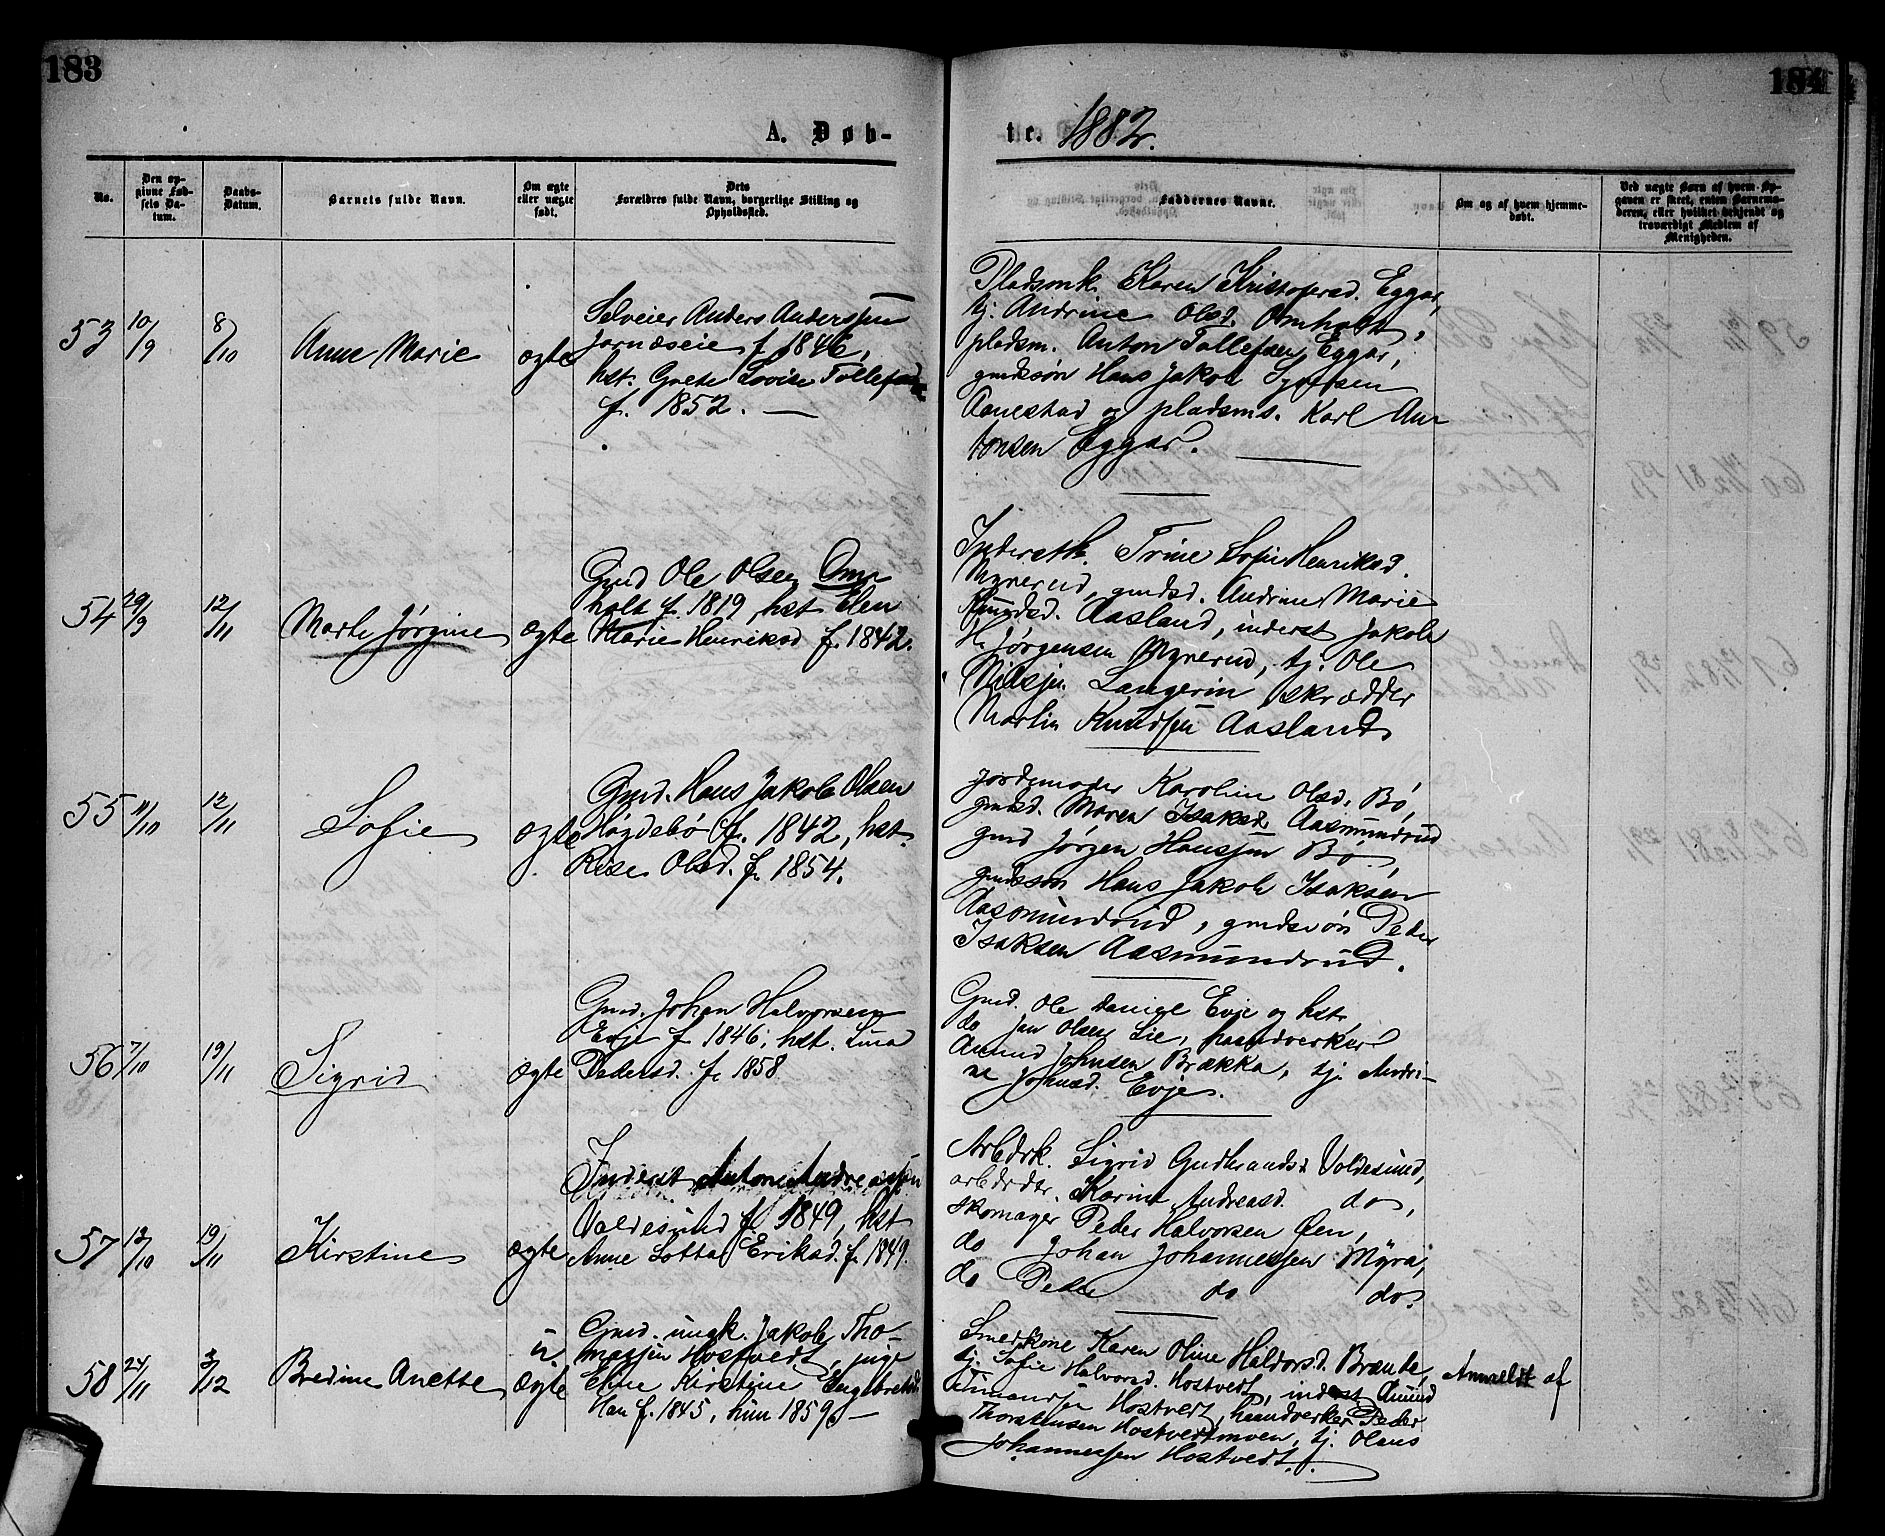 183
184
A. Døb-
te. 1882.
No.
Den op-
givne Fød-
sels Da-
tum.
Daabs-
Datum.
Barnets fulde Navn.
Om ægte
eller uægte
født.
Dets
Forældres fulde Navn, borgerlige Stilling og
Opholdssted.
Faddernes Navne.
Om og af hvem hjemme-
døbt.
Ved uægte Børn af hvem Op-
gaven er skeet, enten Barnemo-
deren, eller hvilket bekjendt og
troværdigt Medlem af
Menigheden.
53 10/9 8/10 Anne Marie ægte
Selveier Anders Anderssen
Jarnæseie f. 1846,
hst. Grete Lovise Tollefsd.
f. 1852. —
Pladsmk. Karen Kristofersd. Eggar,
tj. Andrine Olsd. Omholt,
pladsm. Anton Tollefsen Eggar,
gmdssøn Hans Jakob Syversen
Aanestad og pladsms. Karl An-
tonsen Eggar.
54 29/9 12/11 Marte Jørgine ægte
Gmd Ole Olsen Om-
holt f. 1819, hst Elen
Marie Henriksd f. 1842.
Inderstk. Trine Sofie Henriksd.
Myrerud, gmdsd. Andrine Marie
Knudsd. Aasland, inderst Jakob
H. Jørgensen Myrerud, tj. Ole
Nilssen Langerin skrædder
Martin Knudssen Aasland
55 11/10 12/11 Sofie ægte
Gmd. Hans Jakob Olsen
Høgdebø f. 1842, hst.
Rise Olsd. f. 1854.
Jordemoder Karolin Olsd. Bø,
gmdsd. Maren Isaksd. Aasmundrud
gmd Jørgen Hanssen Bø
gmdssøn Hans Jakob Isaksen
Aasmundrud, gmdssøn Peder
Isaksen Aasmundrud.
56 7/10 19/11 Sigrid ægte
Gmd. Johan Halvorsen
Evje f. 1846, hst. Lina
Pedersd. f. 1858
Gmd. Ole Daniel Evje og hst
do Jan Olsen Lie, haandverker
Amund Johnsen Brækka, tj. Andri-
ne Johnsd. Evje.
57 12/10 19/11 Kirstine ægte
Inderst Anton Andreassen
Valdesund f. 1849, hst
Anne Lotta Eriksd. f. 1849.
Arbdrk. Sigrid Gudbrandsd. Valdesund,
arbdrdtr. Karine Andreasd. do,
skomager Peder Halvorsen Øen,
do Johan Johannessen Myra,
do Peder do do.
58 24/11 3/12 Bredine Anette uægte
Gmd. ungk. Jakob Tho-
massen Hostvedt, pige
Eline Kirstine Engebretsd.
Han f. 1845, hun 1859. —
Smedkone Karen Oline Haldorsd. Brænde,
tj. Sofie Halvorsd. Hostvedt, inderst Amund
Amundsen Hostvedt, haandverker Peder
Thorstensen Hostvedtmoen, tj. Olaus
Johannessen Hostvedt.
Anmeldt af